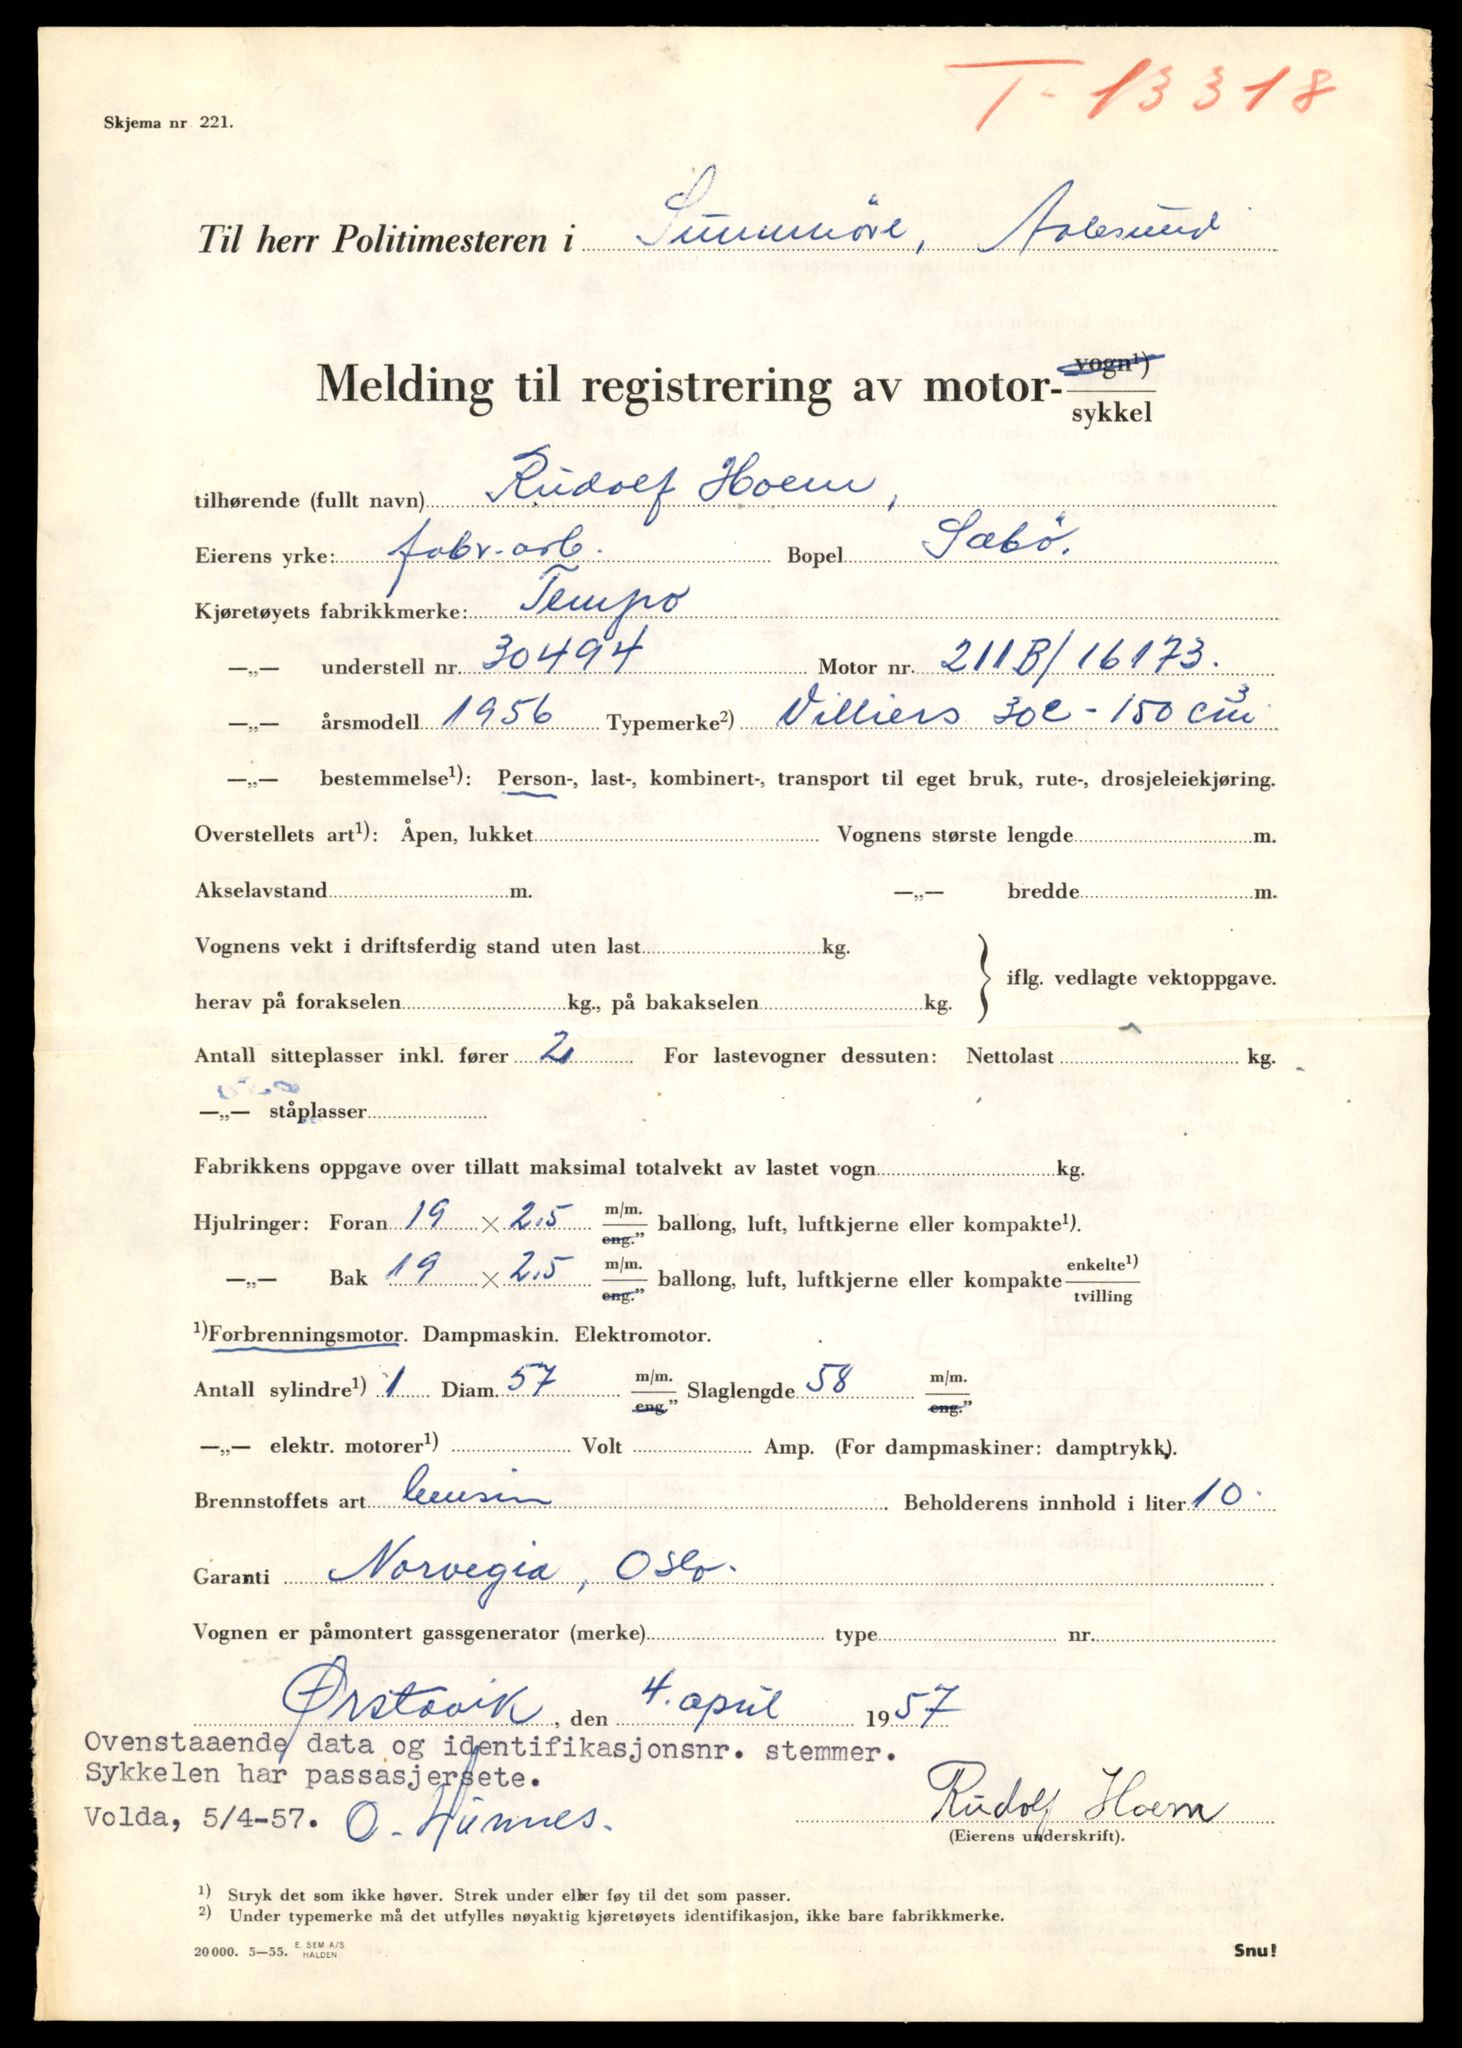 T-13318
Skjema nr 221.
Til herr Politimesteren i Sunnmöre, Aalesund
Melding til registrering av motor-vogn¹)
sykkel
tilhørende (fullt navn) Rudolf Hoem,
Eierens yrke: fabr.arb. Bopel Sæbö.
Kjøretøyets fabrikkmerke: Tempo
—„— understell nr. 30494 Motor nr. 211B/16173.
—„— årsmodell 1956 Typemerke²) Villiers 30C - 150 cm³
—„— bestemmelse¹): Person-, last-, kombinert-, transport til eget bruk, rute-, drosjeleiekjøring.
Overstellets art¹): Åpen, lukket Vognens største lengde m.
Akselavstand m. —„— bredde m.
Vognens vekt i driftsferdig stand uten last kg.
herav på forakselen kg., på bakakselen kg. } iflg. vedlagte vektoppgave.
Antall sitteplasser inkl. fører 2 For lastevogner dessuten: Nettolast kg.
—„— ståplasser
Fabrikkens oppgave over tillatt maksimal totalvekt av lastet vogn kg.
Hjulringer: Foran 19 × 2.5 m/m. eng.” ballong, luft, luftkjerne eller kompakte¹).
—„— Bak 19 × 2.5 m/m. eng.” ballong, luft, luftkjerne eller kompakte enkelte¹) tvilling
¹)Forbrenningsmotor. Dampmaskin. Elektromotor.
Antall sylindre¹) 1 Diam. 57 m/m. eng.” Slaglengde 58 m/m. eng.”
—„— elektr. motorer¹) Volt Amp. (For dampmaskiner: damptrykk).
Brennstoffets art bensin Beholderens innhold i liter 10.
Garanti Norvegia, Oslo.
Vognen er påmontert gassgenerator (merke) type nr.
Ørstavik, den 4. april 1957
Ovenstaaende data og identifikasjonsnr. stemmer.
Sykkelen har passasjersete.
Volda, 5/4-57. O. Hunnes.
Rudolf Hoem
(Eierens underskrift).
¹) Stryk det som ikke høver. Strek under eller føy til det som passer.
²) Under typemerke må det utfylles nøyaktig kjøretøyets identifikasjon, ikke bare fabrikkmerke.
20000. 5—55. E. SEM A/S HALDEN
Snu!